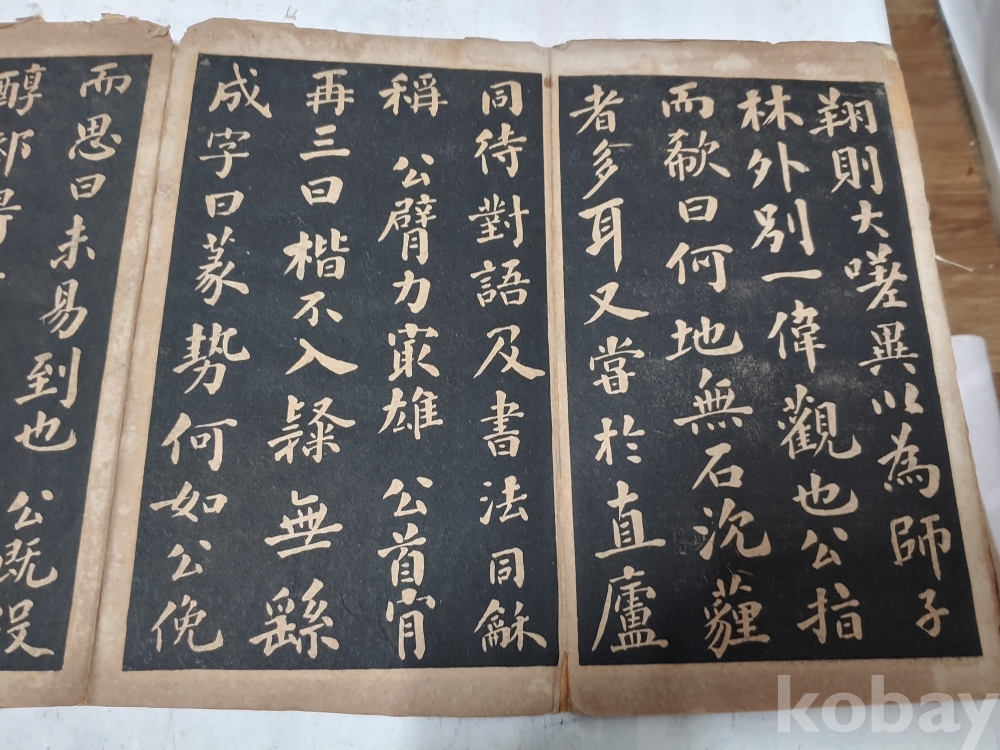 翔則大嗟異以為師子
林外別一偉觀也公指
而欷曰何地無石沉薶
者多耳又嘗於直廬
同待對語及書法同龢
稱 公臂力冣雄 公首肯
再三曰楷不入隸無繇
成字曰篆勢何如公俛
而思曰未易到也 公既没
醇邸
kobay